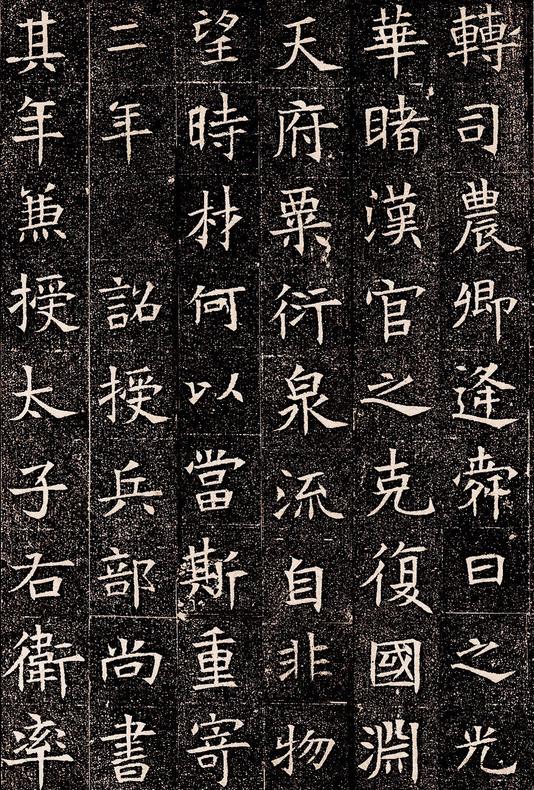 轉司農卿逢舜日之光
華睹漢官之克復國淵
天府粟衍泉流自非物
望時材何以當斯重寄
二年詔授兵部尚書
其年兼授太子右衛率